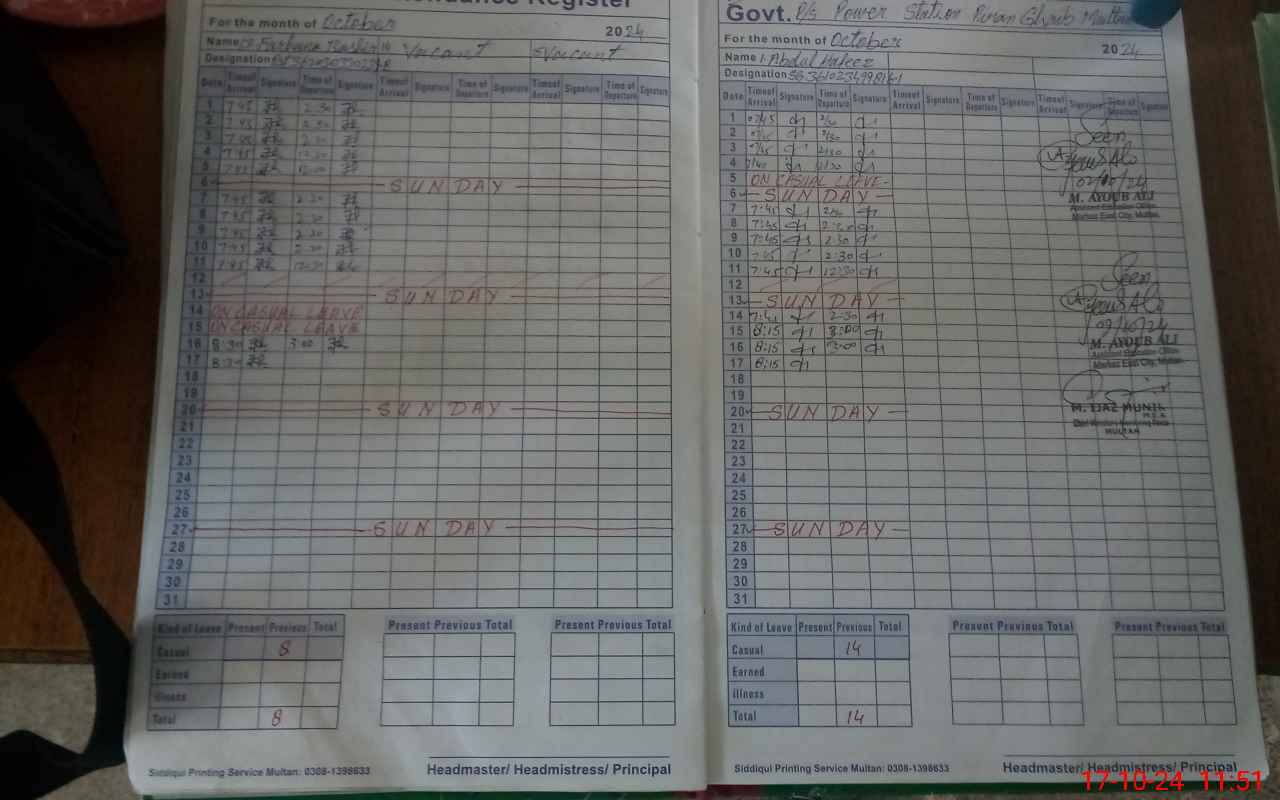 Attendance Register
For the month of October 2024
Name Farhana Vacant Vacant
Designation
Date Time of Arrival Signature Time of Departure Signature Time of Arrival Signature Time of Departure Signature Time of Arrival Signature Time of Departure Signature
1 7:45 2:30
2 7:45 2:30
3 7:45 2:30
4 7:45 12:30
5 7:45
6 SUNDAY
7 7:45 2:30
8 7:45 2:30
9 7:45 2:30
10 7:45 2:30
11 7:45 12:30
12
13 SUNDAY
14 ON CASUAL LEAVE
15 ON CASUAL LEAVE
16 8:30 3:00
17 8:30
18
19
20 SUNDAY
21
22
23
24
25
26
27 SUNDAY
28
29
30
31
Kind of Leave Present Previous Total Present Previous Total Present Previous Total
Casual 8
Earned
illness
Total 8
Headmaster/ Headmistress/ Principal
Siddiqui Printing Service Multan: 0308-1398633
Govt. P/S Power Station Piran Ghaib Multan
For the month of October 2024
Name 1. Abdul Hafeez
Designation
Date Time of Arrival Signature Time of Departure Signature Time of Arrival Signature Time of Departure Signature Time of Arrival Signature Time of Departure Signature
1 07:45 2:30
2 2:30
3 2:30
4 7:40 12:30
5 ON CASUAL LEAVE
6 SUNDAY
7 7:45 2:30
8 7:45 2:30
9 7:45 2:30
10 7:45 2:30
11 7:45 12:30
12
13 SUNDAY
14 2:30
15 8:15 3:00
16 8:15 3:00
17 8:15
18
19
20 SUNDAY
21
22
23
24
25
26
27 SUNDAY
28
29
30
31
Seen
02/10/24
M. AYOUB ALI
Assistant Education Officer
Markaz East City, Multan.
Seen
09/10/24
M. AYOUB ALI
Assistant Education Officer
Markaz East City, Multan.
M. IJAZ MUNIR
MULTAN
Kind of Leave Present Previous Total Present Previous Total Present Previous Total
Casual 14
Earned
illness
Total 14
Headmaster/ Headmistress/ Principal
Siddiqui Printing Service Multan: 0308-1398633
17-10-24 11:51